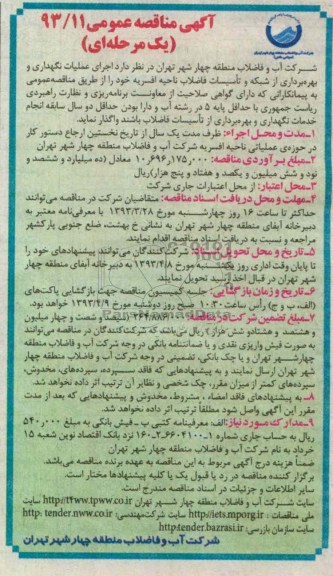 آگهی مناقصه عمومی ۹۳/۱۱
(یک مرحله‌ای)
شــرکت آب و فاضلاب منطقه چهار شهر تهران در نظر دارد اجرای عملیات نگهداری و
بهره‌برداری از شبکه و تأسیسات فاضلاب ناحیه افسریه خود را از طریق مناقصه‌عمومی
به پیمانکارانی که دارای گواهی صلاحیت از معاونـت برنامه‌ریزی و نظارت راهبردی
ریاست جمهوری با حداقل پایه ۵ در رشته آب و دارا بودن حداقل دو سال سابقه انجام
خدمات نگهداری و بهره‌برداری از تأسیسات فاضلاب باشند واگذار نماید.
۱ـ مدت و محل اجرا: ظرف مدت یک سال از تاریخ نخستین ارجاع دستور کار
در حوزه‌ی عملیاتی ناحیه افسریه شرکت آب و فاضلاب منطقه چهار شهر تهران
۲ـ مبلغ برآوردی مناقصه: ۱۰,۶۹۶,۱۷۵,۰۰۰ معادل (ده میلیارد و ششصد و
نود و شش میلیون و یکصد و هفتاد و پنج هزار)ریال
۳ـ محل اعتبار: از محل اعتبارات جاری شرکت
۴ـ مهلت و محل دریافت اسناد مناقصه: متقاضیان شرکت در مناقصه می‌توانند
حداکثر تا ساعت ۱۶ روز چهارشنبـه مورخ ۱۳۹۳/۳/۲۸ با معرفی‌نامه معتبر به
دبیرخانه آبفای منطقه چهار شهر تهران به نشانی خ بهشت، ضلع جنوبی پارکشهر
مراجعه و نسبت به دریافت اسناد مناقصه اقدام نمایند.
۵ـ تاریخ و محل تحویل اسناد: شرکت‌کنندگان می‌توانند پیشنهادهای خود را
تا پایان وقت اداری روز یکشنبه مورخ ۱۳۹۳/۴/۸ به دبیرخانه آبفای منطقه چهار
شهر تهران در قبال اخذ رسید تحویل نمایند.
۶ـ تاریخ و زمان بازگشایی: جلسه کمیسیون مناقصه جهت بازگشایی پاکت‌های
(الف، ب و ج) رأس ساعت ۱۰:۳۰ صبح روز دوشنبه مورخ ۱۳۹۳/۴/۹ خواهد بود.
۷ـ مبلغ تضمین شرکت در مناقصه: و شصت و چهار میلیون
و هشتصد و هشتادو شش‌هزار) ریال می‌باشد که شرکت‌کنندگان در مناقصه می‌توانند
به صورت فیش واریزی نقدی و یا ضمانتنامه بانکی در وجه شرکت آب و فاضلاب منطقه
چهارشــهر تهران و یا چک بانکی، تضمینی در وجه شرکت آب و فاضلاب منطقه چهار
شهر تهران ارسال نمایند و به پیشنهادهایی که فاقد سـپرده، سپرده‌های، مخدوش،
سپرده‌های کمتر از میزان مقرر، چک شخصی و نظایر آن ترتیب اثر داده نخواهد شد.
۸ـ به پیشنهادهای فاقد امضاء، مشروط، مخدوش و پیشنهادهایی که بعد از مدت
مقرر این آگهی واصل شود مطلقاً ترتیب اثر داده نخواهد شد.
۹ـ مدارک مورد نیاز: الف: معرفی‌نامه کتبی ب ـ فیش بانکی به مبلغ ۵۴۰,۰۰۰
ریال به حساب جاری شماره نزد بانک اقتصاد نوین شعبه ۱۵
خرداد به نام شرکت آب و فاضلاب منطقه چهار شهر تهران
ضمناً هزینه درج آگهی مربوط به این مناقصه به عهده برنده مناقصه می‌باشد.
برگزار کننده مناقصه در رد یا قبول یک یا کلیه پیشنهادها مختار است.
سایر اطلاعات و جزئیات در اسناد مناقصه مندرج است.
سایت شــرکت آب و فاضلاب منطقه چهار شــهر تهران http://t4ww.tpww.co.ir سایت
ملی مناقصات : http://iets.mporg.ir سایت شرکت‌مهندسی: http: tender.nww.co.ir
سایت سازمان بازرسی: http:tender.bazrasi.ir
شرکت آب و فاضلاب منطقه چهار شهر تهران